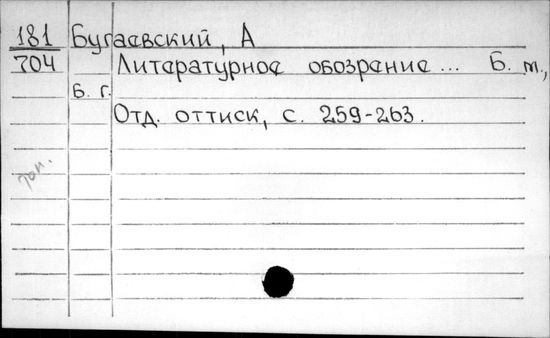 181 Бугаевский, А
704 Литературное обозрение ... Б. т.,
Б. г.
Отд. оттиск, с. 259-263.